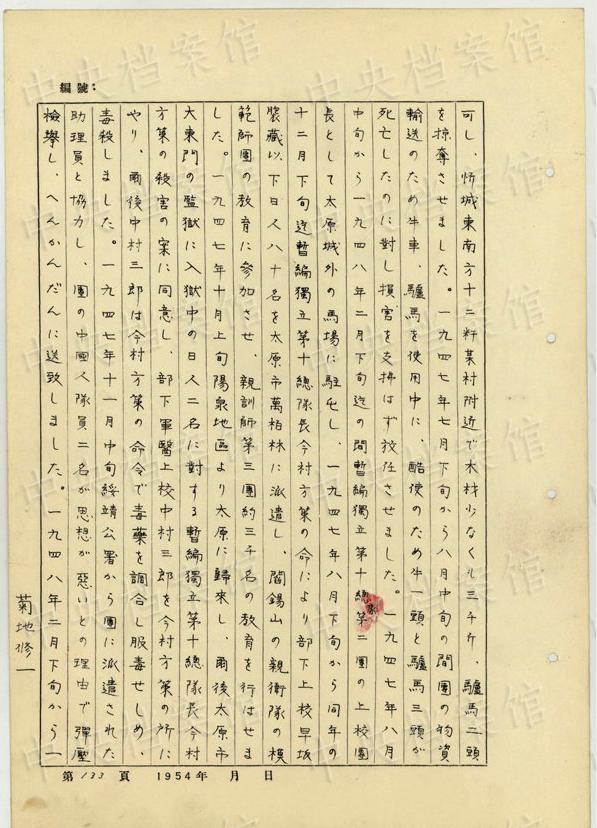 編號：
可し、忻城東南方十二粁某村附近で木材少なくも三千斤、驢馬二頭
を掠奪させました。一九四七年七月下旬から八月中旬の間團の物資
輸送のため牛車、驢馬を使用中に、酷使のため牛一頭と驢馬三頭が
死亡したのに対し損害を支拂はず放任させました。一九四七年八月
中旬から一九四八年二月下旬迄の間暫編獨立第十總第二團の上校團
長として太原城外の馬場に駐屯し、一九四七年八月下旬から同年の
十二月下旬迄暫編獨立第十總隊長今村方策の命により部下上校早坂
䙁藏以下日人八十名を太原市萬柏林に派遣し、閻錫山の親衛隊の模
範師團の教育に参加させ、親訓師第三團約三千名の教育を行はせま
した。一九四七年十月上旬陽泉地區より太原に歸來し、爾後太原市
大東門の監獄に入獄中の日人二名に對する暫編獨立第十總隊長今村
方策の殺害の案に同意し、部下軍醫上校中村三郎を今村方策の所に
やり、爾後中村三郎は今村方策の命令で毒藥を調合し服毒せしめ、
毒殺しました。一九四七年十一月中旬綏靖公署から團に派遣された
助理員と協力し、團の中國人隊員二名が思想が惡いとの理由で彈壓
檢擧し、へんかんだんに送致しました。一九四八年二月下旬から一
菊地修一
第133頁 1954年 月 日
中央档案馆